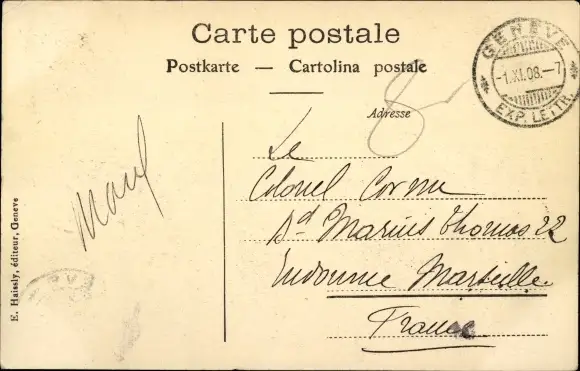 Carte postale
Postkarte — Cartolina postale
Adresse
GENÈVE
-1.XI.08.-7
EXP. LETTR.
8-
Le
Colonel Corme
Bd Marius Thomas 22
Endoume Marseille
France
E. Haissly, éditeur, Genève